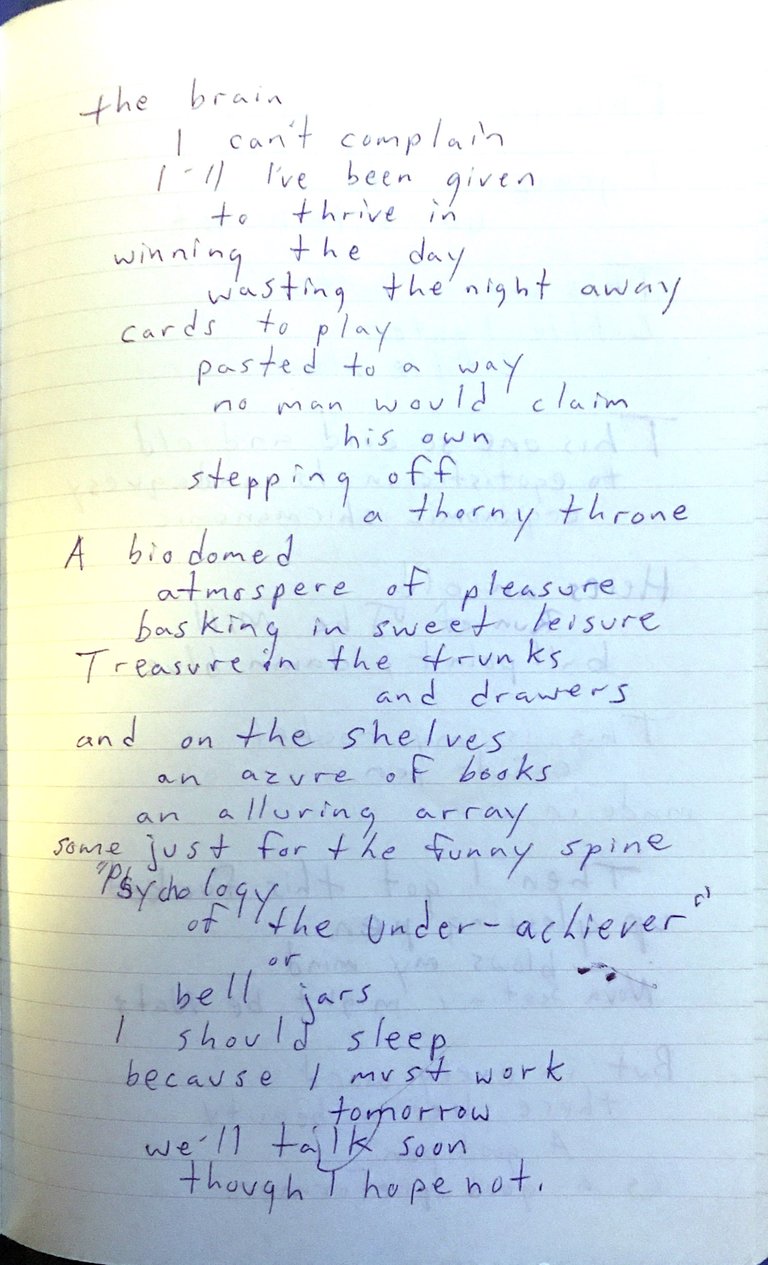 the brain
I can't complain
I'll I've been given
to thrive in
winning the day
wasting the night away
cards to play
pasted to a way
no man would claim
his own
stepping off
a thorny throne
A biodomed
atmospere of pleasure
basking in sweet leisure
Treasure in the trunks
and drawers
and on the shelves
an azure of books
an alluring array
some just for the funny spine
"Psychology
of the Under-achiever"
or
bell jars
I should sleep
because I must work
tomorrow
we'll talk soon
though I hope not.